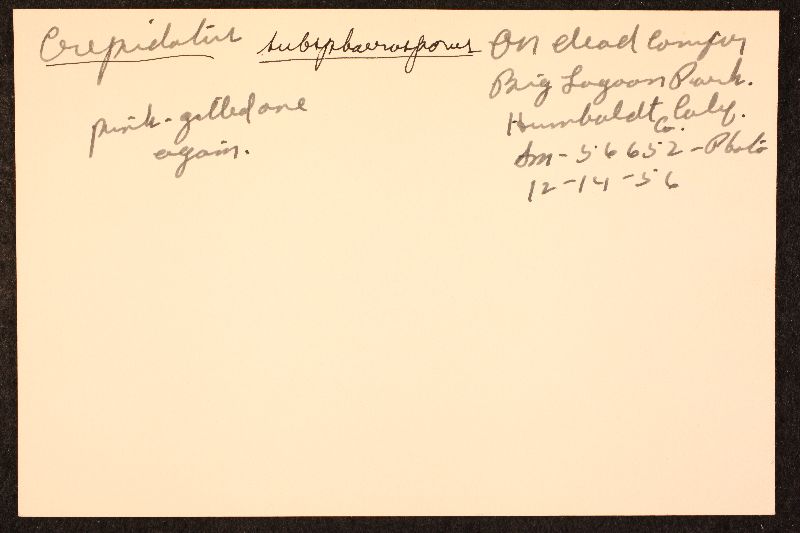 Crepidotus subsphaerosporus On dead conifer
Big Lagoon Park.
pink-gilled one
Humboldt Co. Calif.
again.
Sm-56652-Photo
12-14-56